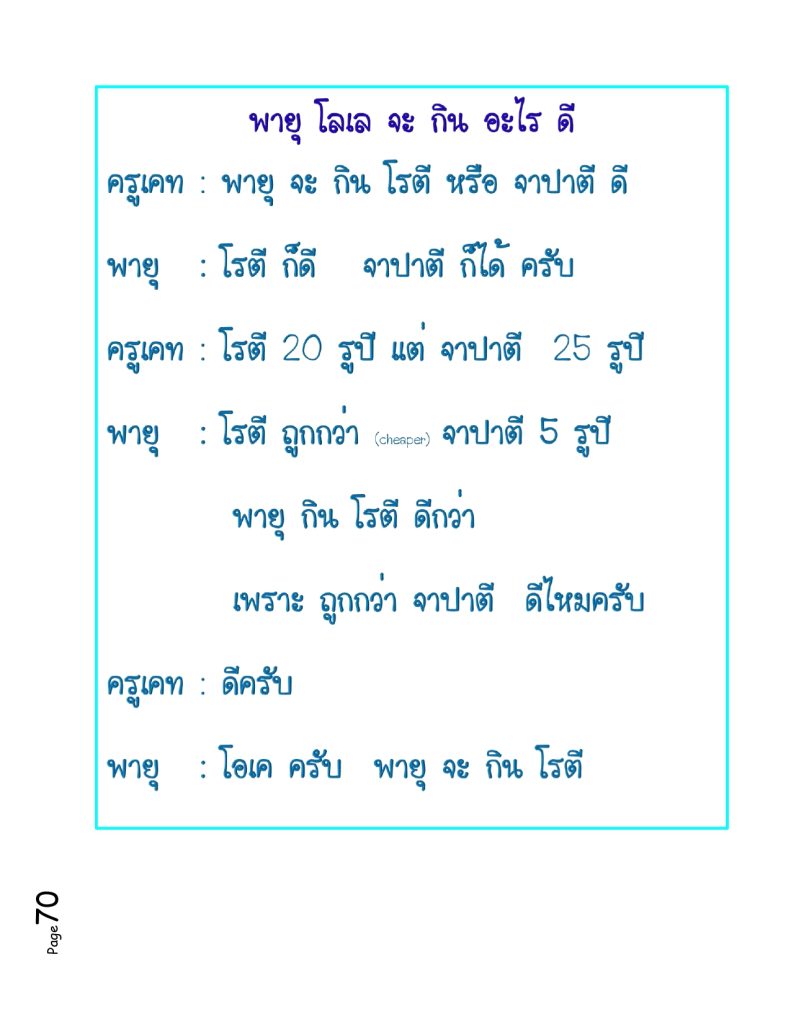 พายุ โลเล จะ กิน อะไร ดี
ครูเคท : พายุ จะ กิน โรตี หรือ จาปาตี ดี
พายุ : โรตี ก็ดี จาปาตี ก็ได้ ครับ
ครูเคท : โรตี 20 รูปี แต่ จาปาตี 25 รูปี
พายุ : โรตี ถูกกว่า (cheaper) จาปาตี 5 รูปี
พายุ กิน โรตี ดีกว่า
เพราะ ถูกกว่า จาปาตี ดีไหมครับ
ครูเคท : ดีครับ
พายุ : โอเค ครับ พายุ จะ กิน โรตี
Page 70